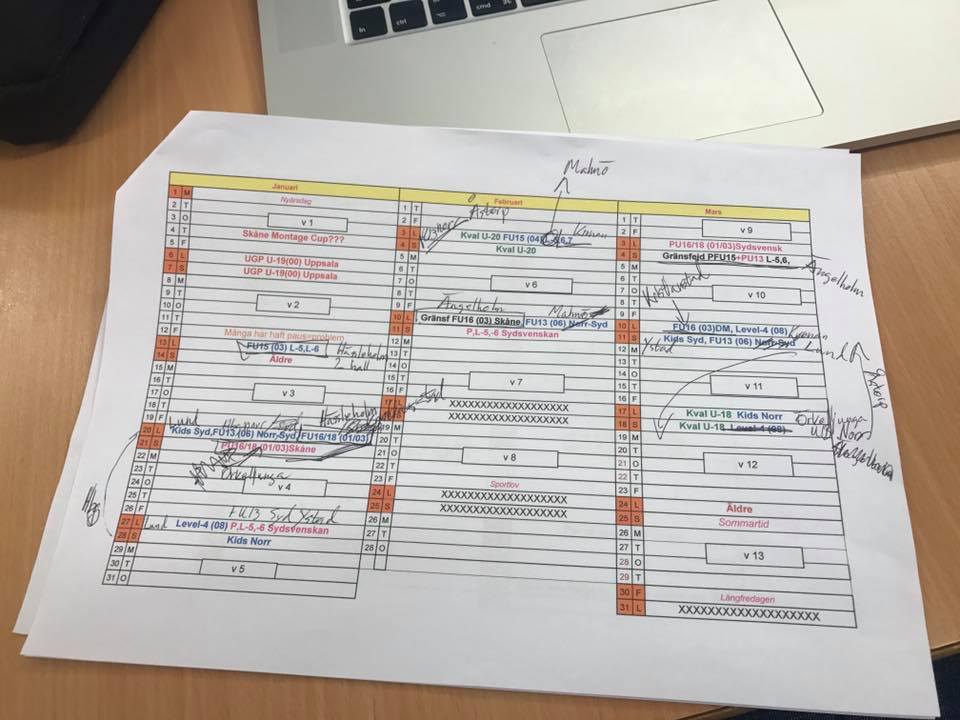 fn
ctrl
ctrl
Malmö
Januari
Februari
Mars
1 M Nyårsdag
2 T
3 O v 1
4 T Skåne Montage Cup???
5 F
6 L UGP U-19(00) Uppsala
7 S UGP U-19(00) Uppsala
8 M
9 T
10 O v 2
11 T
12 F Många har haft paus=problem
13 L FU15 (03) L-5,L-6 Hässleholm
14 S Äldre 2 hall
15 M
16 T
17 O v 3
18 T
19 F Lund Hässleholm
20 L Kids Syd,FU13 (06) Norr-Syd, FU16/18 (01/03)
21 S PU16/18 (01/03)Skåne
22 M Örkelljunga
23 T
24 O v 4
25 T
26 F FU13 Syd Ystad
27 L Lund Level-4 (08) P,L-5,-6 Sydsvenskan
28 S Kids Norr
29 M
30 T v 5
31 O
1 T Åstorp
2 F
3 L Kval U-20 FU15 (04) L-5,6,7
4 S Kval U-20
5 M
6 T
7 O v 6
8 T
9 F Ängelholm Malmö
10 L Gränsf FU16 (03) Skåne, FU13 (06) Norr-Syd
11 S P,L-5,-6 Sydsvenskan
12 M
13 T
14 O v 7
15 T
16 F
17 L XXXXXXXXXXXXXXXXXXX
18 S XXXXXXXXXXXXXXXXXXX
19 M
20 T
21 O v 8
22 T
23 F Sportlov
24 L XXXXXXXXXXXXXXXXXXX
25 S XXXXXXXXXXXXXXXXXXX
26 M
27 T
28 O
1 T v 9
2 F
3 L PU16/18 (01/03)Sydsvensk
4 S Gränsfejd PFU15+PU13 L-5,6, Ängelholm
5 M
6 T
7 O v 10
8 T Kristianstad
9 F
10 L FU16 (03)DM, Level-4 (08)
11 S Kids Syd, FU13 (06) Norr-Syd Lund
12 M Ystad
13 T
14 O v 11
15 T Åstorp
16 F
17 L Kval U-18 Kids Norr
18 S Kval U-18 Level-4 (08)
19 M
20 T
21 O v 12
22 T
23 F
24 L Äldre
25 S Sommartid
26 M
27 T v 13
28 O
29 T
30 F Långfredagen
31 L XXXXXXXXXXXXXXXXXXXX